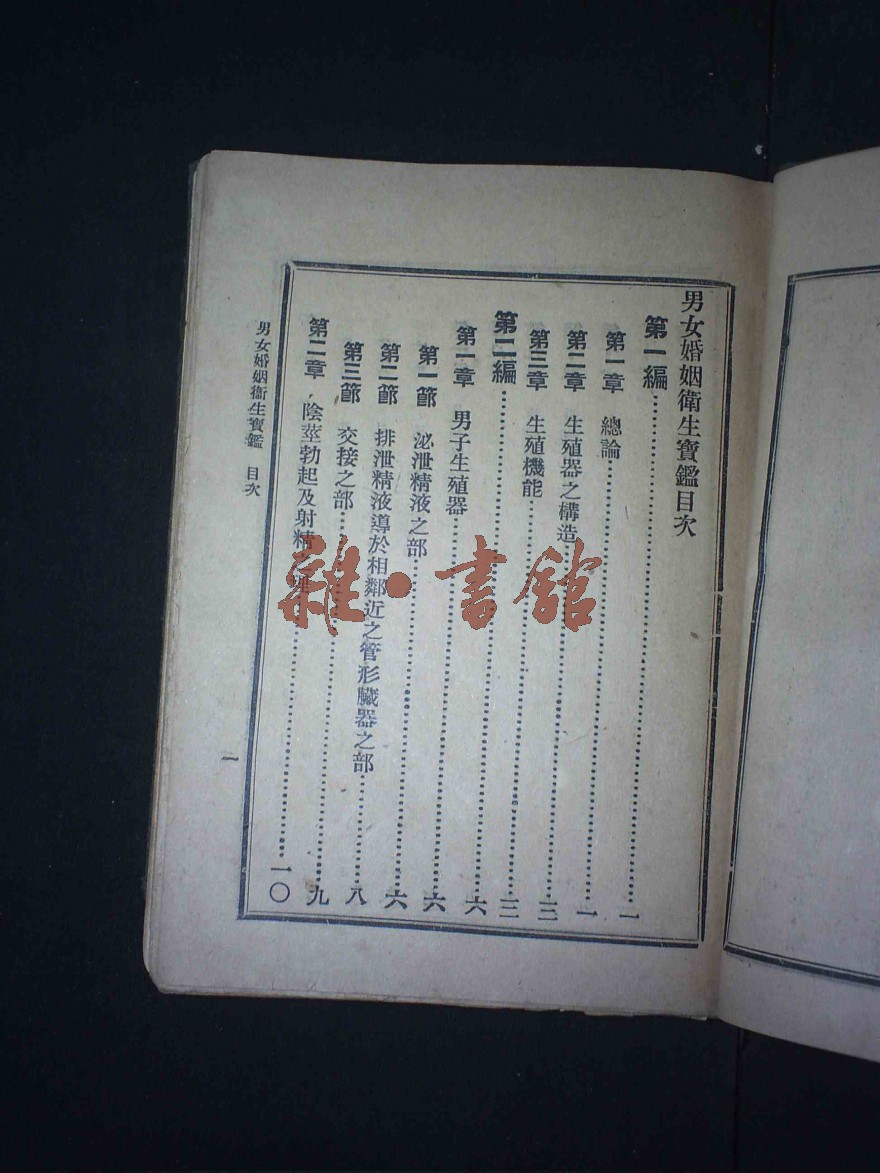 男女婚姻衛生寶鑑目次
第一編……一
第一章 總論……一
第二章 生殖器之構造……三
第三章 生殖機能……三
第二編……六
第一章 男子生殖器……六
第一節 泌泄精液之部……六
第二節 排泄精液導於相鄰近之管形臟器之部……八
第三節 交接之部……九
第二章 陰莖勃起及射精……一〇
男女婚姻衛生寶鑑 目次
一
雜·書館